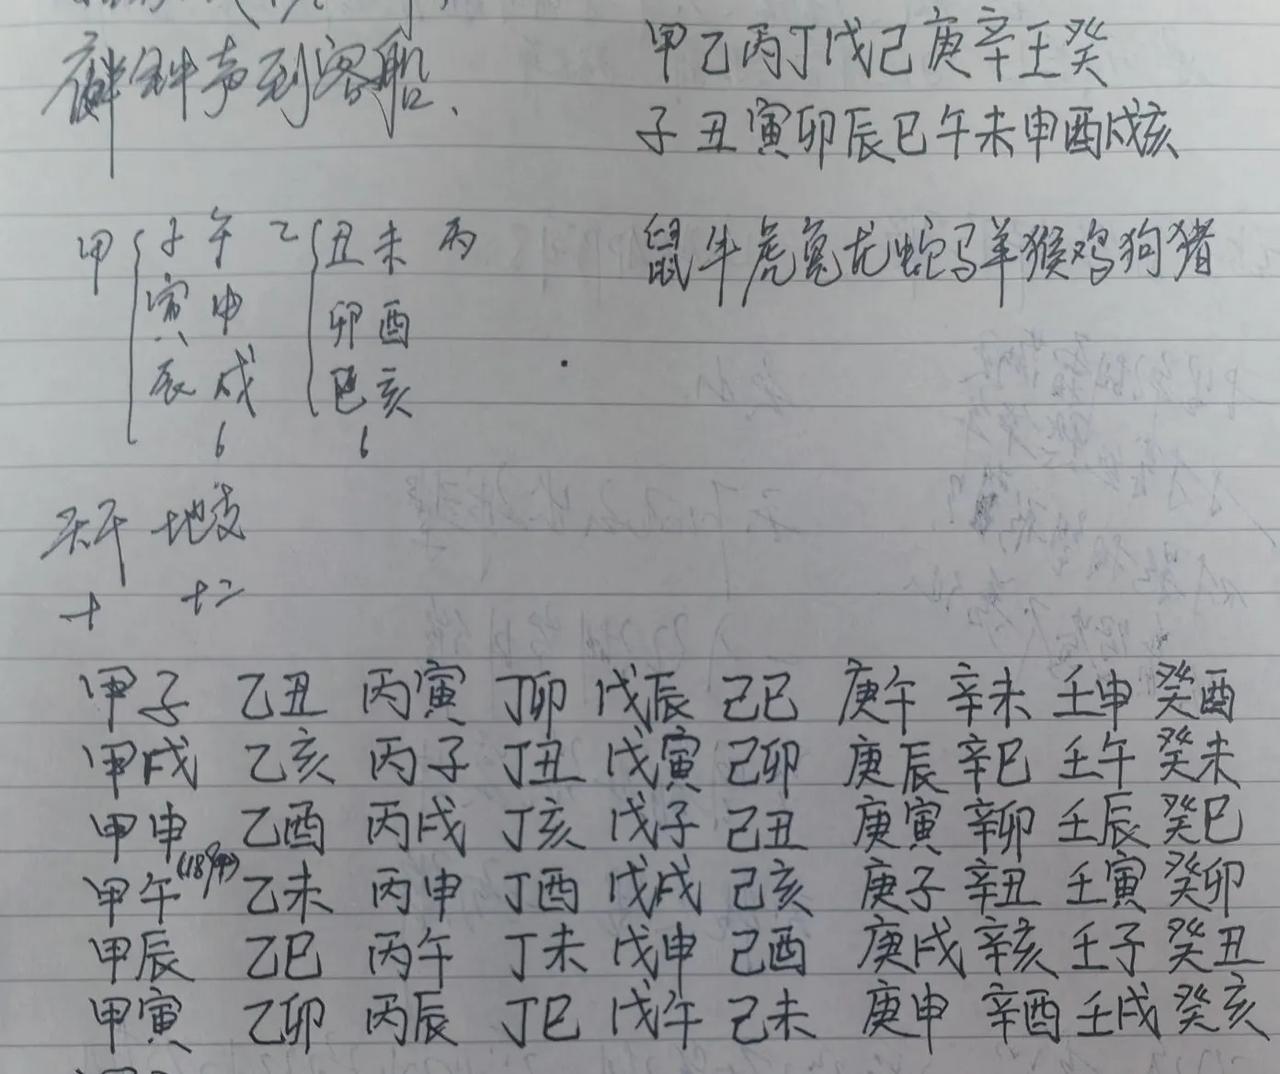 半夜钟声到客船、
甲乙丙丁戊己庚辛壬癸
子丑寅卯辰巳午未申酉戌亥
鼠牛虎兔龙蛇马羊猴鸡狗猪
甲 子午 乙 丑未 丙
寅申 卯酉
辰戌 巳亥
6 6
天干 地支
十 十二
甲子 乙丑 丙寅 丁卯 戊辰 己巳 庚午 辛未 壬申 癸酉
甲戌 乙亥 丙子 丁丑 戊寅 己卯 庚辰 辛巳 壬午 癸未
甲申 乙酉 丙戌 丁亥 戊子 己丑 庚寅 辛卯 壬辰 癸巳
甲午(189甲) 乙未 丙申 丁酉 戊戌 己亥 庚子 辛丑 壬寅 癸卯
甲辰 乙巳 丙午 丁未 戊申 己酉 庚戌 辛亥 壬子 癸丑
甲寅 乙卯 丙辰 丁巳 戊午 己未 庚申 辛酉 壬戌 癸亥